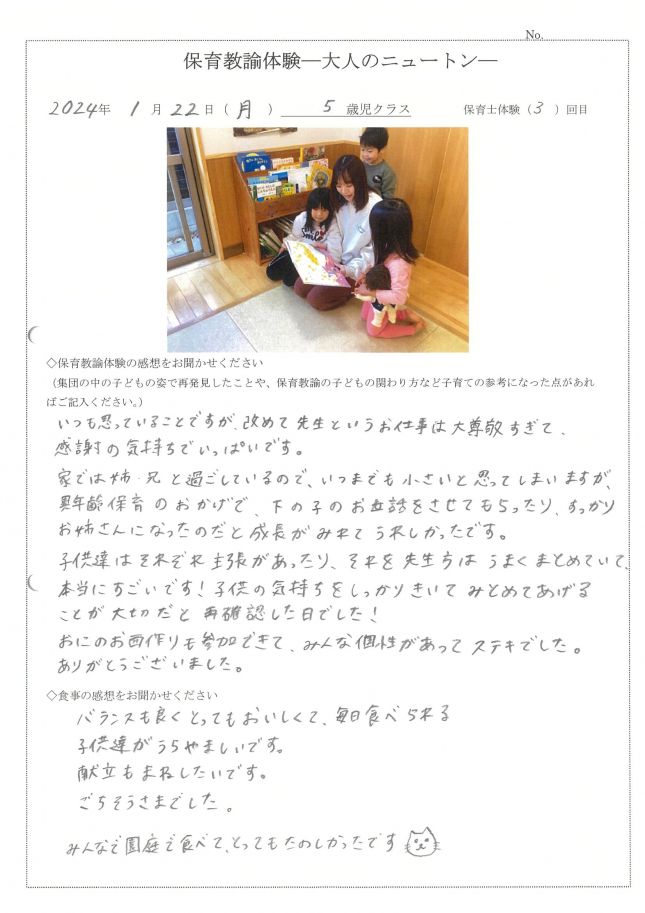 No.
保育教諭体験―大人のニュートン―
2024年 1月22日(月) 5歳児クラス 保育士体験(3)回目
◇保育教諭体験の感想をお聞かせください
（集団の中の子どもの姿で再発見したことや、保育教諭の子どもの関わり方など子育ての参考になった点があれ
ばご記入ください。）
いつも思っていることですが、改めて先生というお仕事は大尊敬すぎて、
感謝の気持ちでいっぱいです。
家では姉・兄と過ごしているので、いつまでも小さいと思ってしまいますが、
異年齢保育のおかげで、下の子のお世話をさせてもらったり、すっかり
お姉さんになったのだと成長がみれてうれしかったです。
子供達はそれぞれ主張があったり、それを先生方はうまくまとめていて、
本当にすごいです！子供の気持ちをしっかりきいてみとめてあげる
ことが大切だと再確認した日でした！
おにのお面作りも参加できて、みんな個性があってステキでした。
ありがとうございました。
◇食事の感想をお聞かせください
バランスも良くとってもおいしくて、毎日食べられる
子供達がうらやましいです。
献立もまねしたいです。
ごちそうさまでした。
みんなで園庭で食べて、とってもたのしかったです